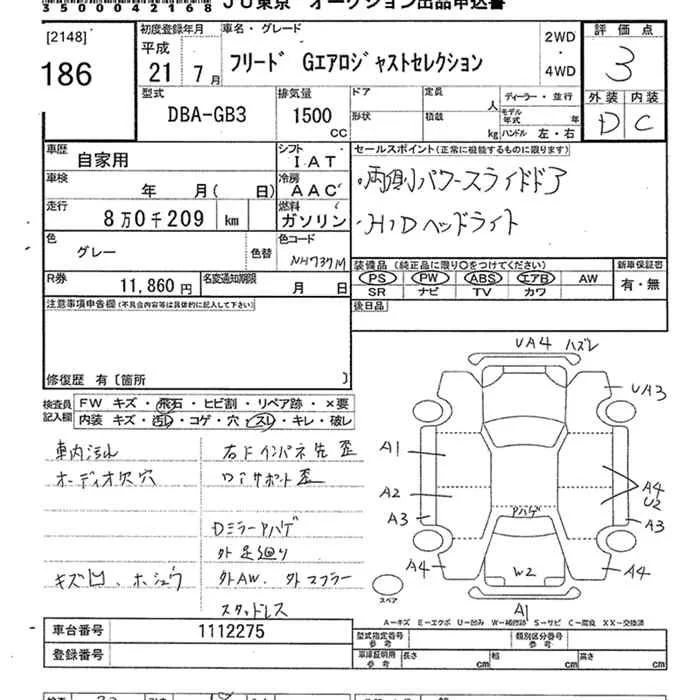 3500042168 JU東京 オークション出品申込書
[2148]
186
初度登録年月
平成
21年7月
車名・グレード
フリード Gエアロジャストセレクション
2WD
・
4WD
評価点
3
外装 内装
D C
型式
DBA-GB3
排気量
1500
CC
ドア
形状
定員
人
積載
kg
ディーラー・並行
モデル年式 年
ハンドル 左・右
車歴
自家用
シフト
IAT
車検
年 月( 日)
冷房
AAC
走行
8万0千209 km
燃料
ガソリン
色
グレー
色替
色コード
NH737M
R券
11,860円
名変通知期限
月 日
セールスポイント(正常に機能するものに限ります)
・両側パワースライドドア
・HIDヘッドライト
装備品 (純正品に限り○をつけてください)
PS PW ABS エアB AW
SR ナビ TV カワ
新車保証書
有・無
後日品
注意事項申告欄(不具合内容等は具体的に記入して下さい)
修復歴 有〔箇所 〕
検査員記入欄
FW キズ・飛石・ヒビ割・リペア跡・×要
内装 キズ・汚レ・コゲ・穴・スレ・キレ・破レ
車内汚れ
オーディオ欠穴
キズ凹、ホシュウ
右Fインパネ先歪
ロアサポート歪
Dミラーアハゲ
外足廻り
外AW、外マフラー
スタッドレス
UA4 ハズレ
UA3
A1
A2
A3
A4
アハゲ
W2
A4
U2
A3
A4
A1
スペア
A-キズ E-エクボ U-凹み W-補修跡 S-サビ C-腐食 XX-交換済
車台番号
1112275
登録番号
型式指定番号
参考
類別区分番号
参考
車庫証明用
参考
長さ cm
幅 cm
高さ cm